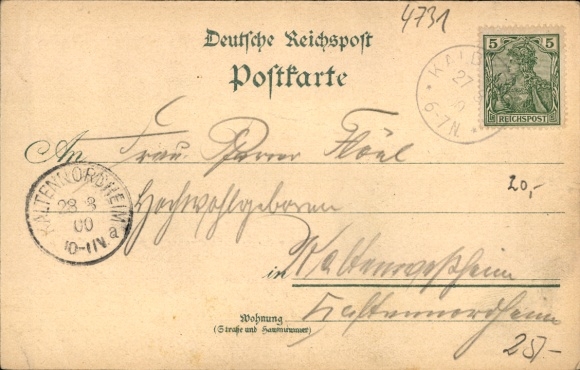 4731
Deutsche Reichspost
Postkarte
5 5
REICHSPOST
KALD
27
6-7N.
An Frau Pfarrer
20,-
KALTENNORDHEIM
28 8
00
10-11V. a
Hochwohlgeboren
in Kaltenwestheim
Kaltennordheim
Wohnung
(Straße und Hausnummer)
25,-